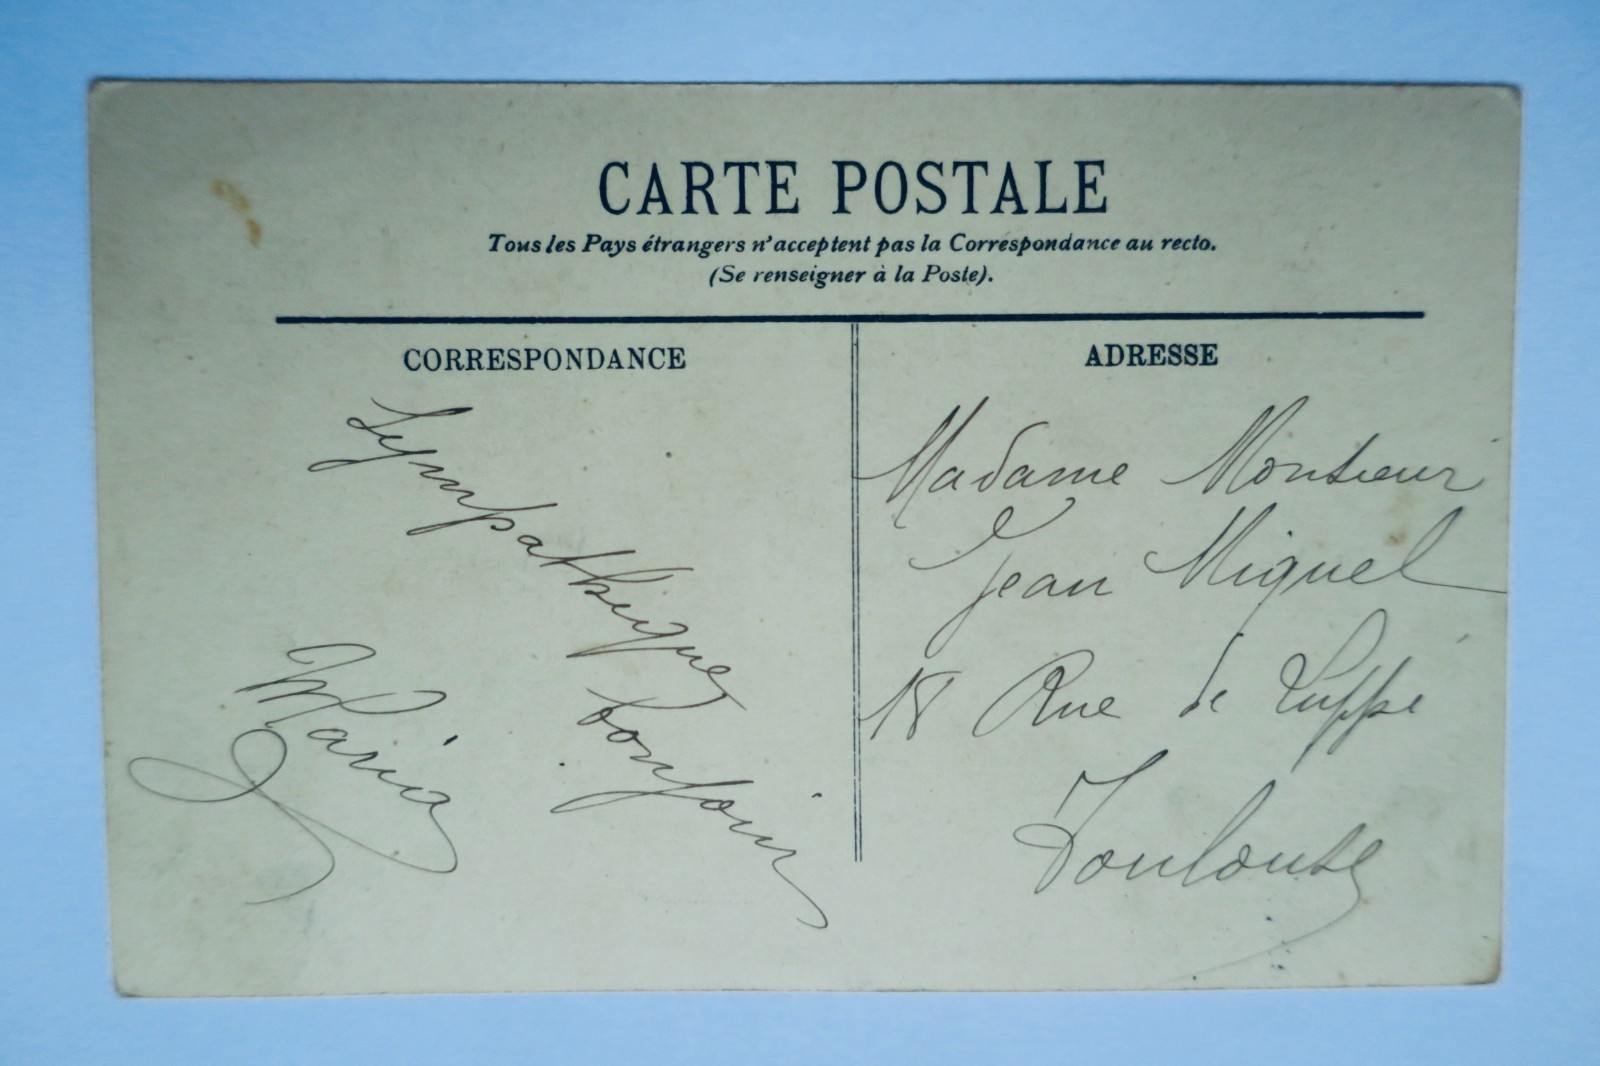 CARTE POSTALE
Tous les Pays étrangers n'acceptent pas la Correspondance au recto.
(Se renseigner à la Poste).
CORRESPONDANCE
Sympathique
bonjour
Maria
ADRESSE
Madame Monsieur
Jean Miquel
18 Rue de Luppé
Toulouse